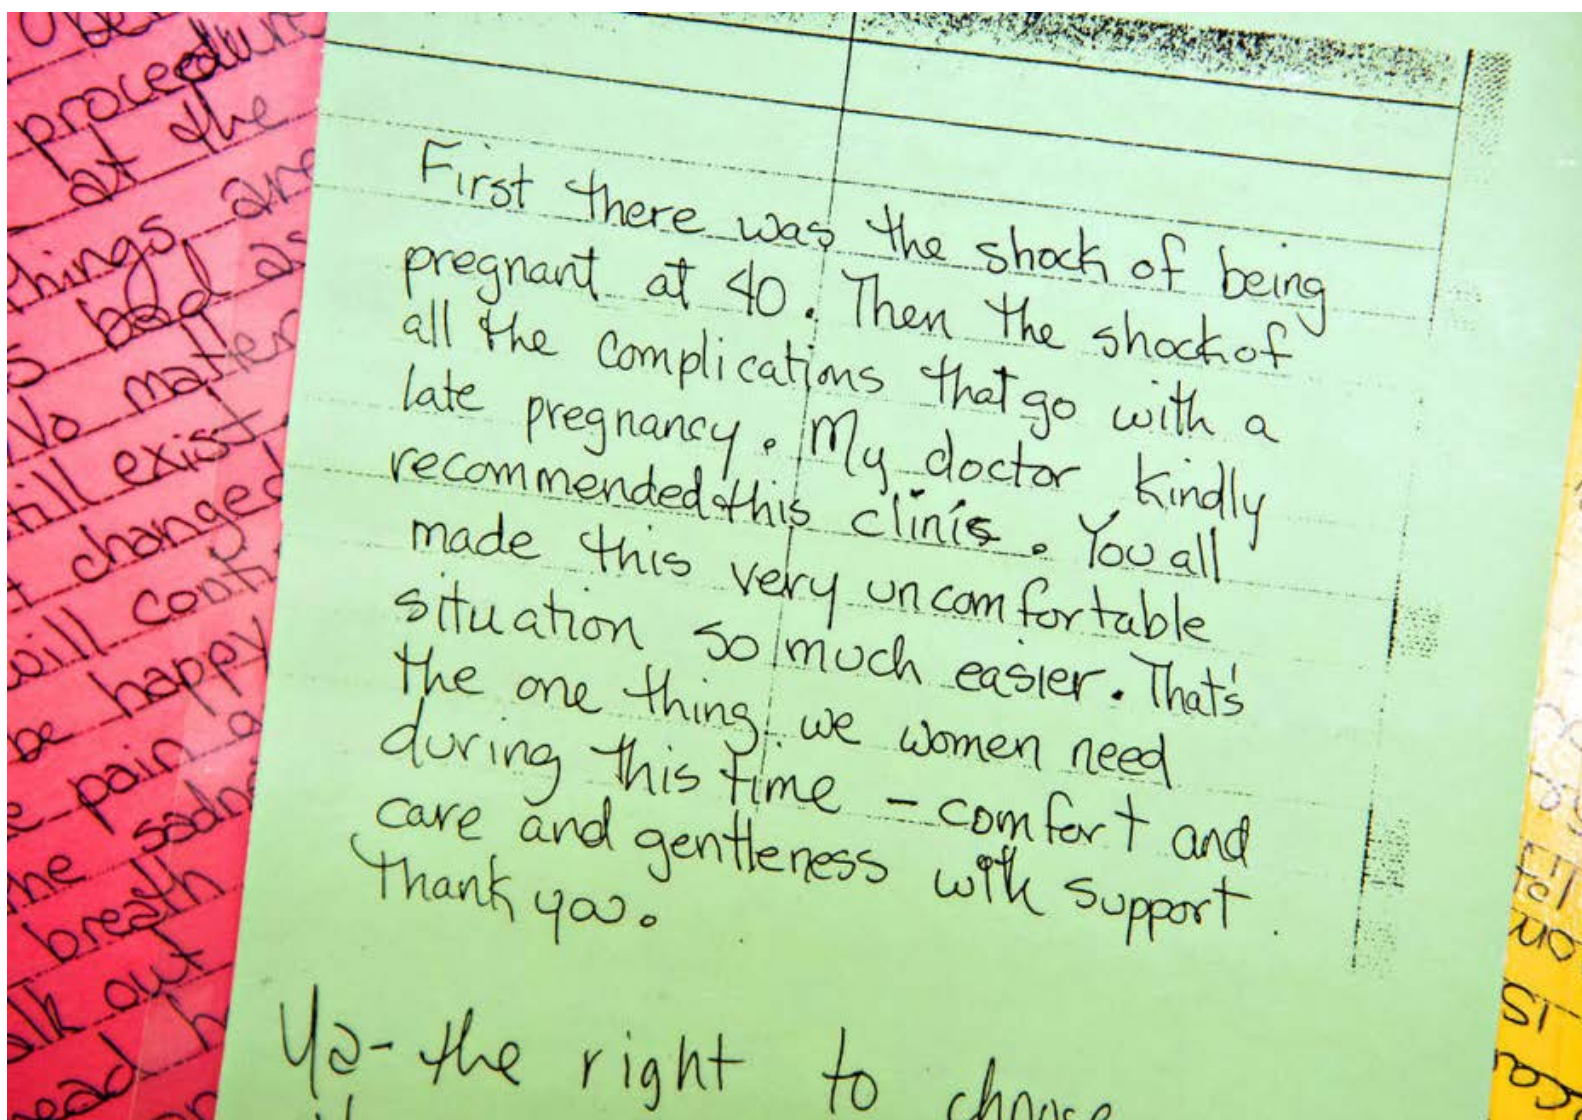 procedure
at the
things are
bad as
No matter
still exist
changed
will
be happy
pain a
the
breath
out
First there was the shock of being
pregnant at 40. Then the shock of
all the complications that go with a
late pregnancy. My doctor kindly
recommended this clinic. You all
made this very uncomfortable
situation so much easier. That's
the one thing we women need
during this time - comfort and
care and gentleness with support.
Thank you.
Ya- the right to choose
on
is